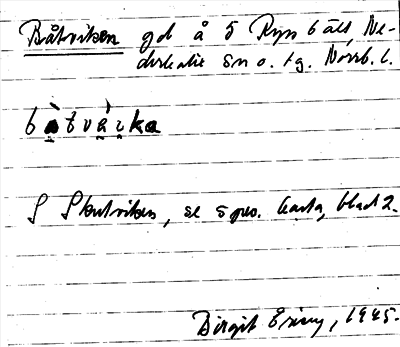 Båtviken gd å 5 Ryss bält, Ne-
derkalix sn o. tg. Norrb. l.
båtvika
S Skutviken, se spec. karta, blad 2.
Birgit 1945.